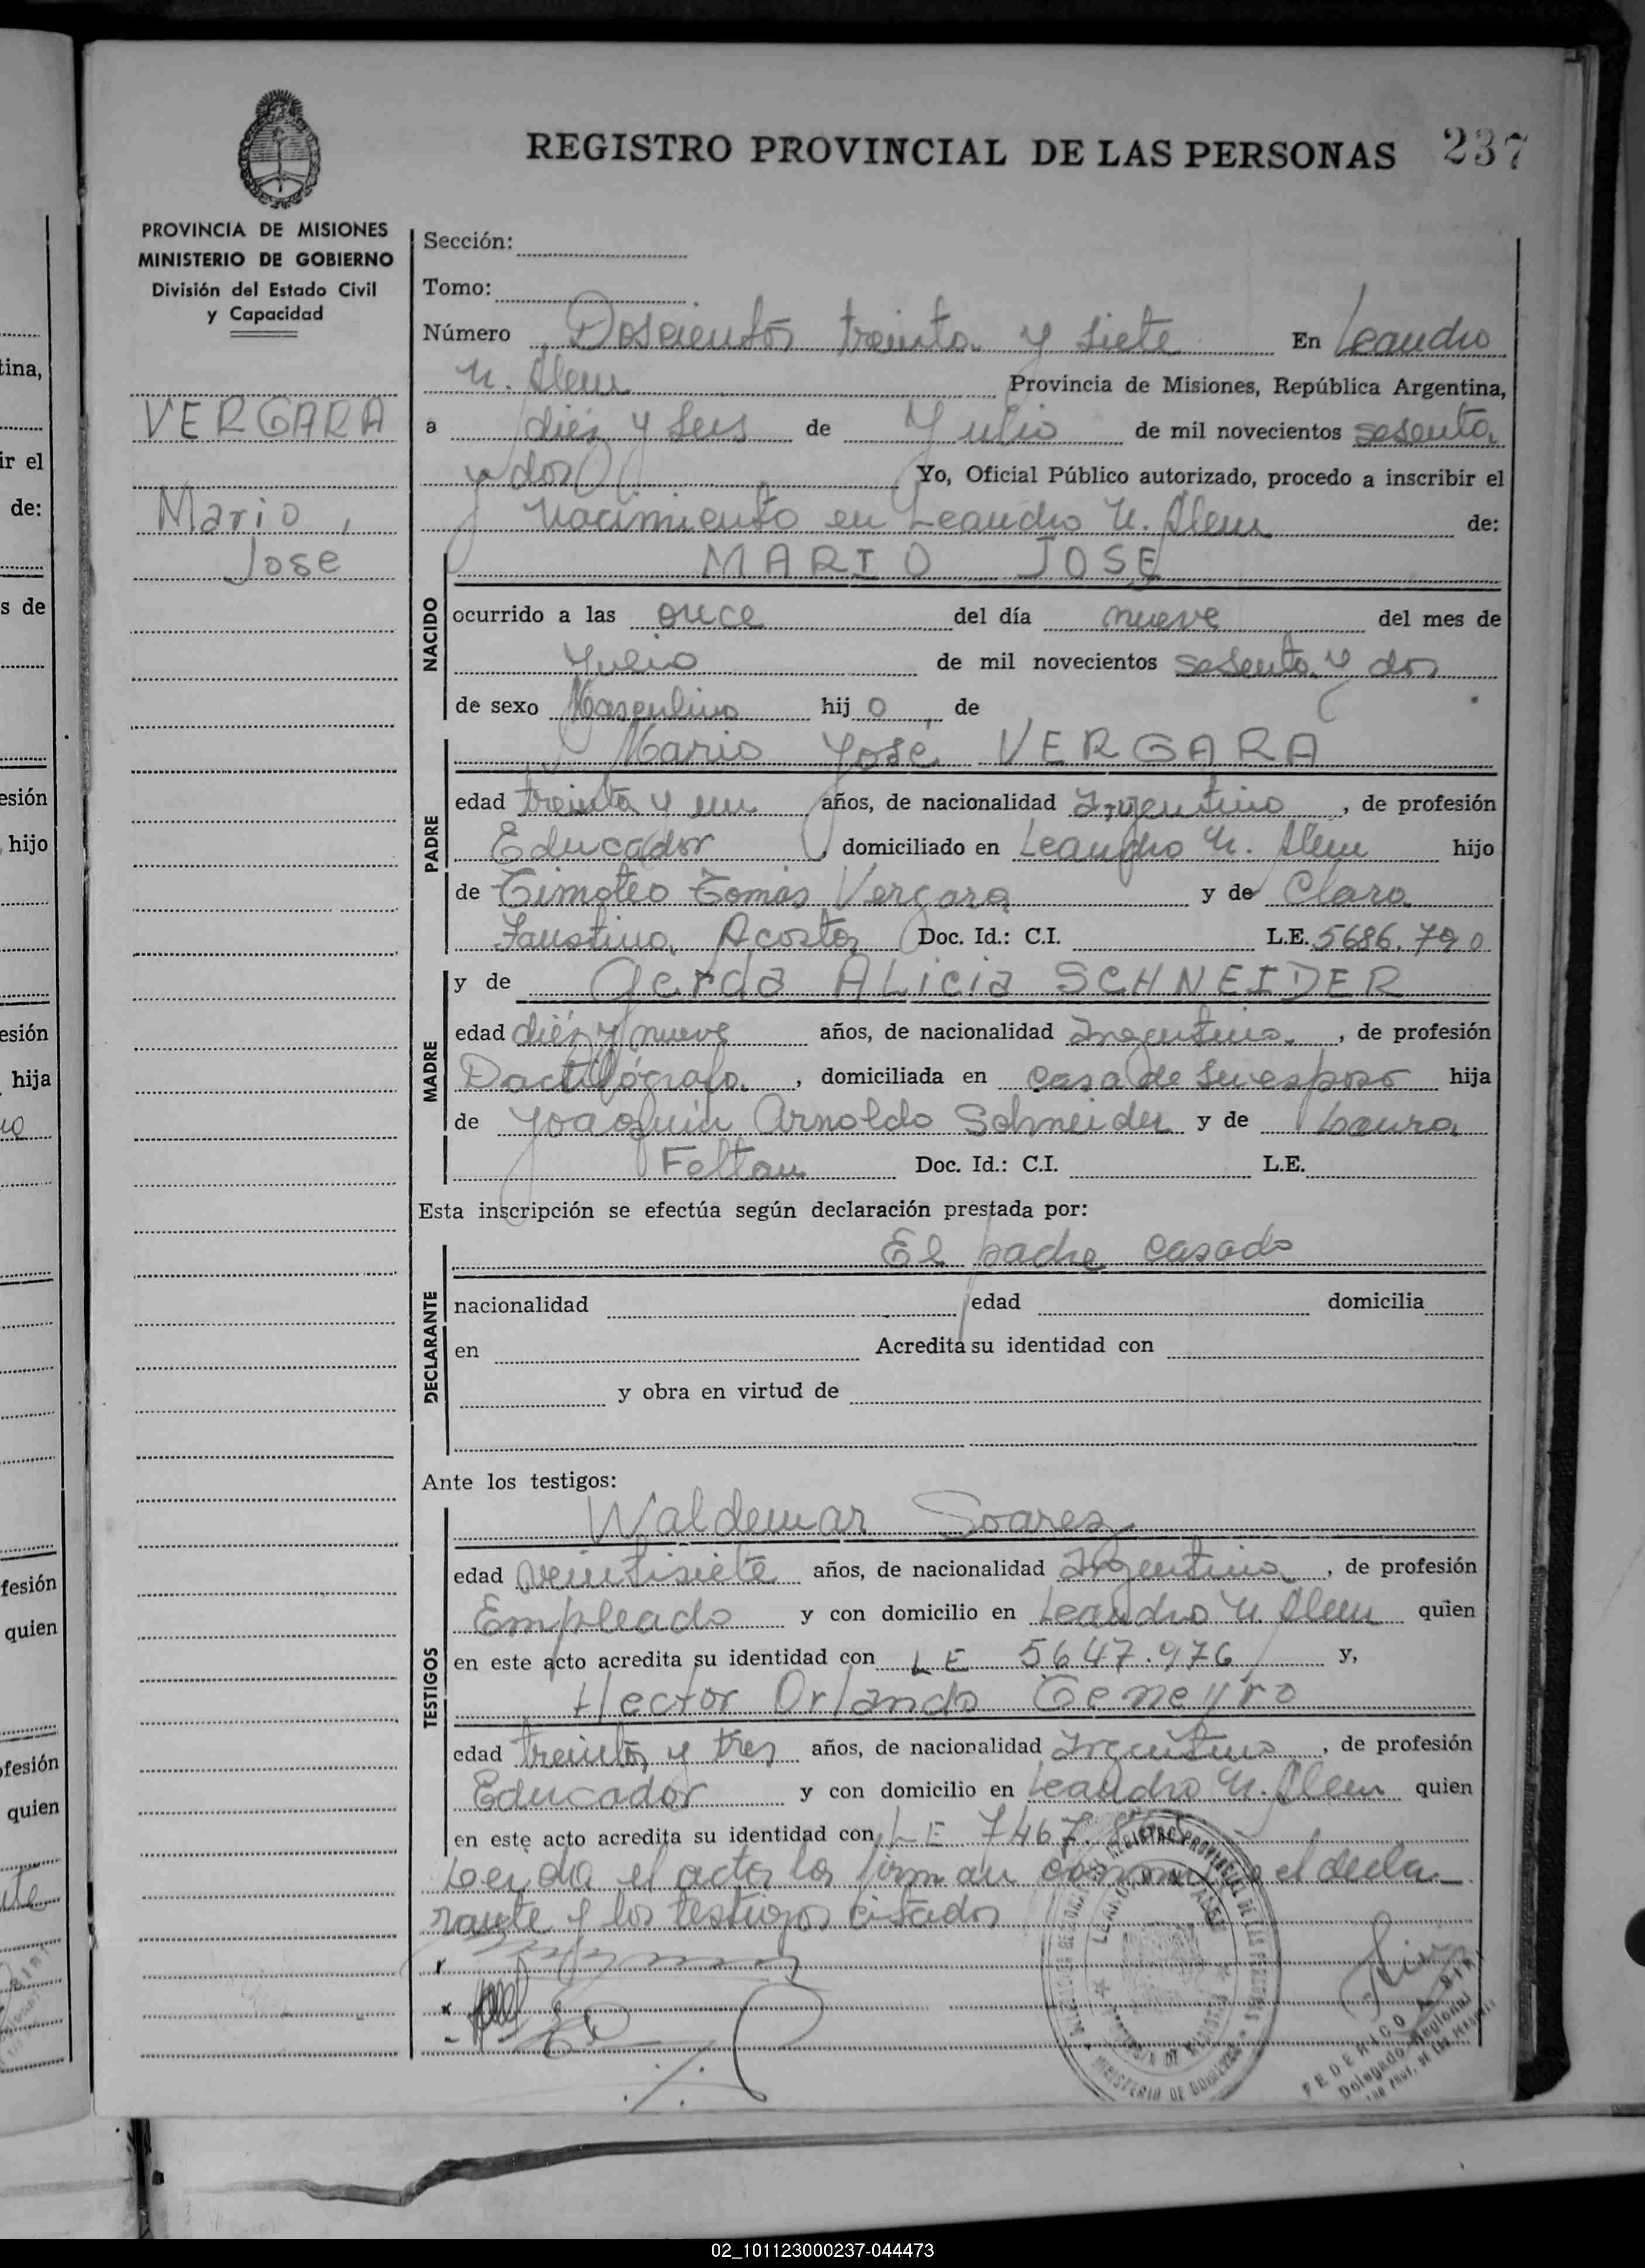 REGISTRO PROVINCIAL DE LAS PERSONAS 237
PROVINCIA DE MISIONES
MINISTERIO DE GOBIERNO
División del Estado Civil
y Capacidad
VERGARA
Mario,
Jose
Sección:
Tomo:
Número Doscientos treinta y siete En Leandro
N. Alem Provincia de Misiones, República Argentina,
a diéz y seis de Julio de mil novecientos sesenta
y dos Yo, Oficial Público autorizado, procedo a inscribir el
Nacimiento en Leandro N. Alem de:
NACIDO
MARIO JOSE
ocurrido a las once del día nueve del mes de
Julio de mil novecientos sesenta y dos
de sexo Masculino hijo de
PADRE
Mario José VERGARA
edad treinta y un años, de nacionalidad Argentino, de profesión
Educador, domiciliado en Leandro N. Alem hijo
de Timoteo Tomás Vergara y de Clara
Faustina Acosta Doc. Id.: C.I. L.E. 5686.790
MADRE
y de Gerda ALicia SCHNEIDER
edad diéz y nueve años, de nacionalidad Argentina, de profesión
Dactilógrafa, domiciliada en casa de su esposo hija
de Joaquín Arnoldo Schneider y de Laura
Feltan Doc. Id.: C.I. L.E.
Esta inscripción se efectúa según declaración prestada por:
DECLARANTE
El padre casado
nacionalidad edad domicilia
en Acredita su identidad con
y obra en virtud de
Ante los testigos:
TESTIGOS
Waldemar Soarez
edad veintisiete años, de nacionalidad Argentina, de profesión
Empleado y con domicilio en Leandro N. Alem quien
en este acto acredita su identidad con LE 5647.976 y,
Hector Orlando
edad treinta y tres años, de nacionalidad Argentino, de profesión
Educador y con domicilio en Leandro N. Alem quien
en este acto acredita su identidad con LE 7467.
Leida el acta la firman el decla
rante y los testigos citados
REGISTRO PROVINCIAL DE LAS PERSONAS
MINISTERIO DE GOBIERNO
FEDERICO
Delegado Regional
02_101123000237-044473